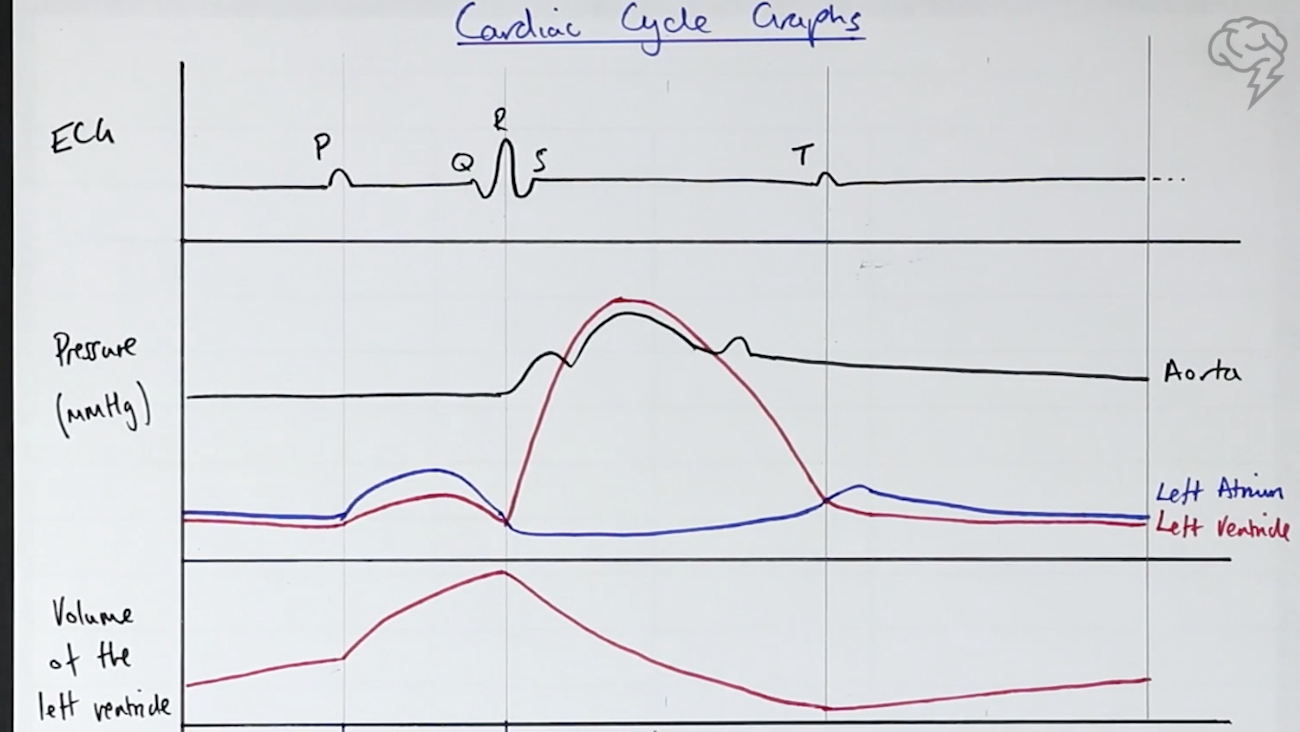 Cardiac Cycle Graphs
ECG
P
Q
R
S
T
Pressure
(mmHg)
Aorta
Left Atrium
Left Ventricle
Volume
of the
left ventricle